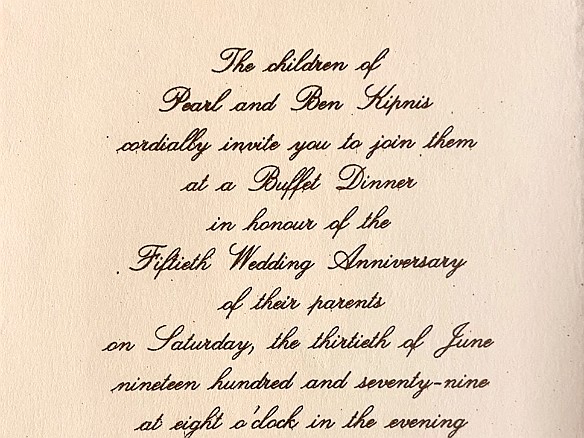 The children of
Pearl and Ben Kipnis
cordially invite you to join them
at a Buffet Dinner
in honour of the
Fiftieth Wedding Anniversary
of their parents
on Saturday, the thirtieth of June
nineteen hundred and seventy-nine
at eight o'clock in the evening